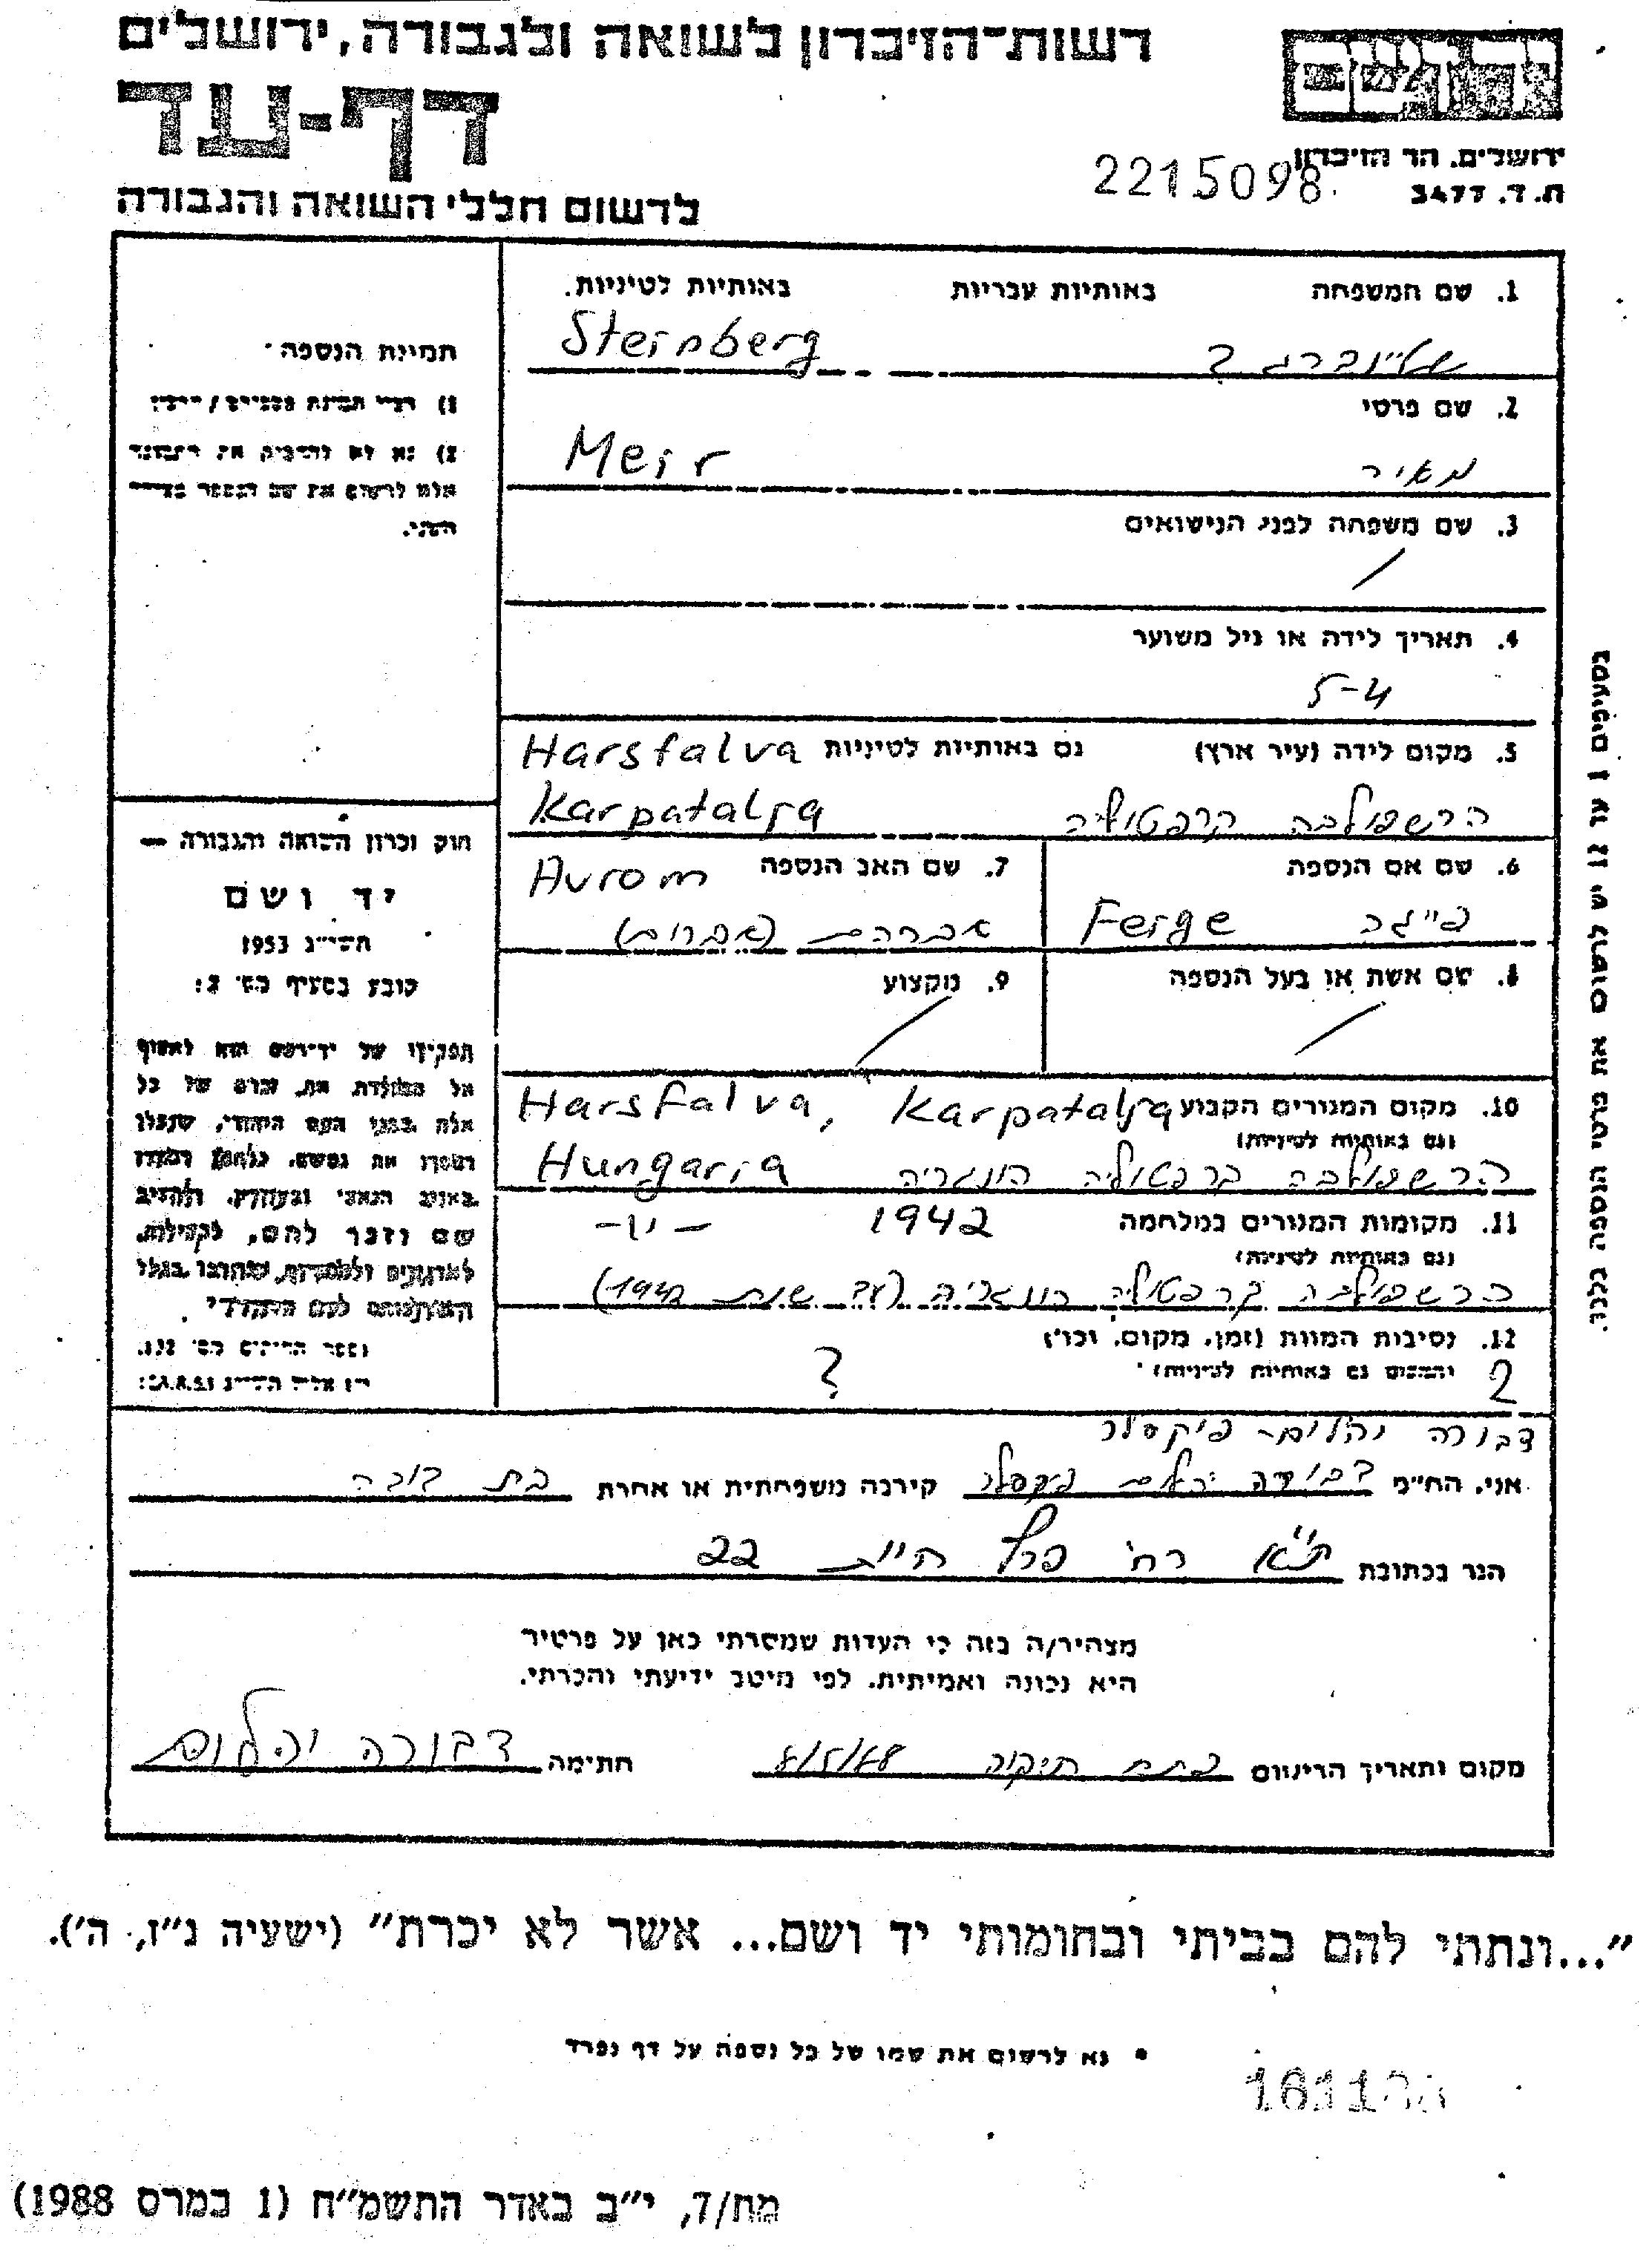 רשות־הזיכרון לשואה ולגבורה, ירושלים
דף-עד
לרשום חללי השואה והגבורה
ירושלים. הר הזיכרון
ת.ד. 3477
2215098
1. שם המשפחה באותיות עבריות באותיות לטיניות.
שטיינברג ? Steinberg
2. שם פרטי
מאיר Meir
3. שם משפחה לפני הנישואים
/
4. תאריך לידה או גיל משוער
5-4
5. מקום לידה (עיר ארץ) גם באותיות לטיניות Harsfalva
הרשפולבה קרפטוליה Karpatalja
6. שם אם הנספה
פייגה Feige
7. שם האב הנספה Avrom
אברהם (אברום)
8. שם אשת או בעל הנספה
/
9. מקצוע
/
10. מקום המגורים הקבוע Harsfalva, Karpatalja
(גם באותיות לטיניות)
הרשפולבה קרפטוליה הונגריה Hungaria
11. מקומות המגורים במלחמה 1942 -״-
(גם באותיות לטיניות)
הרשפולבה קרפטוליה הונגריה (עד שנת 1942)
12. נסיבות המוות (זמן, מקום, וכו׳)
(המקום גם באותיות לטיניות) ? ?
תמונת הנספה
2) נא לא להדביק את התמונה
אלא לרשום את שם הנספה בצידה
השני.
חוק זכרון השואה והגבורה —
יד ושם
תשי״ג 1953
קובע בסעיף מס׳ 2:
תפקידו של יד־ושם הוא לאסוף
אל המולדת את זכרם של כל
אלה מבני העם היהודי, שנפלו
ומסרו את נפשם, נלחמו ומרדו
באויב הנאצי ובעוזריו, ולהציב
שם וזכר להם, לקהילות,
לארגונים ולמוסדות, שנחרבו בגלל
השתייכותם לעם היהודי
דבורה יהלום- פיקסלר
אני, הח״מ דבורה יהלום פיקסלר קירבה משפחתית או אחרת בת דודה
הגר בכתובת ת״א רח׳ פרץ חיות 22
מצהיר/ה בזה כי העדות שמסרתי כאן על פרטיה
היא נכונה ואמיתית, לפי מיטב ידיעתי והכרתי.
מקום ותאריך הרישום פתח תקוה חתימה דבורה יהלום
״...ונתתי להם בביתי ובחומותי יד ושם... אשר לא יכרת״ (ישעיה נ״ו, ה׳).
* נא לרשום את שמו של כל נספה על דף נפרד
מח/ד, י״ב באדר התשמ״ח (1 במרס 1988)